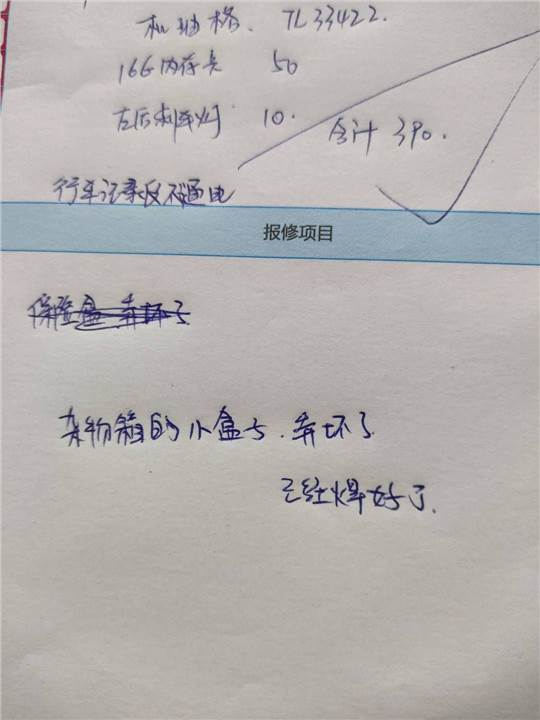 机油格. TL33422.
16G内存卡 50
左后刹车灯 10.
合计 390.
行车记录仪不通电
报修项目
保险盒弄坏了
杂物箱的小盒子.弄坏了
已经焊好了.